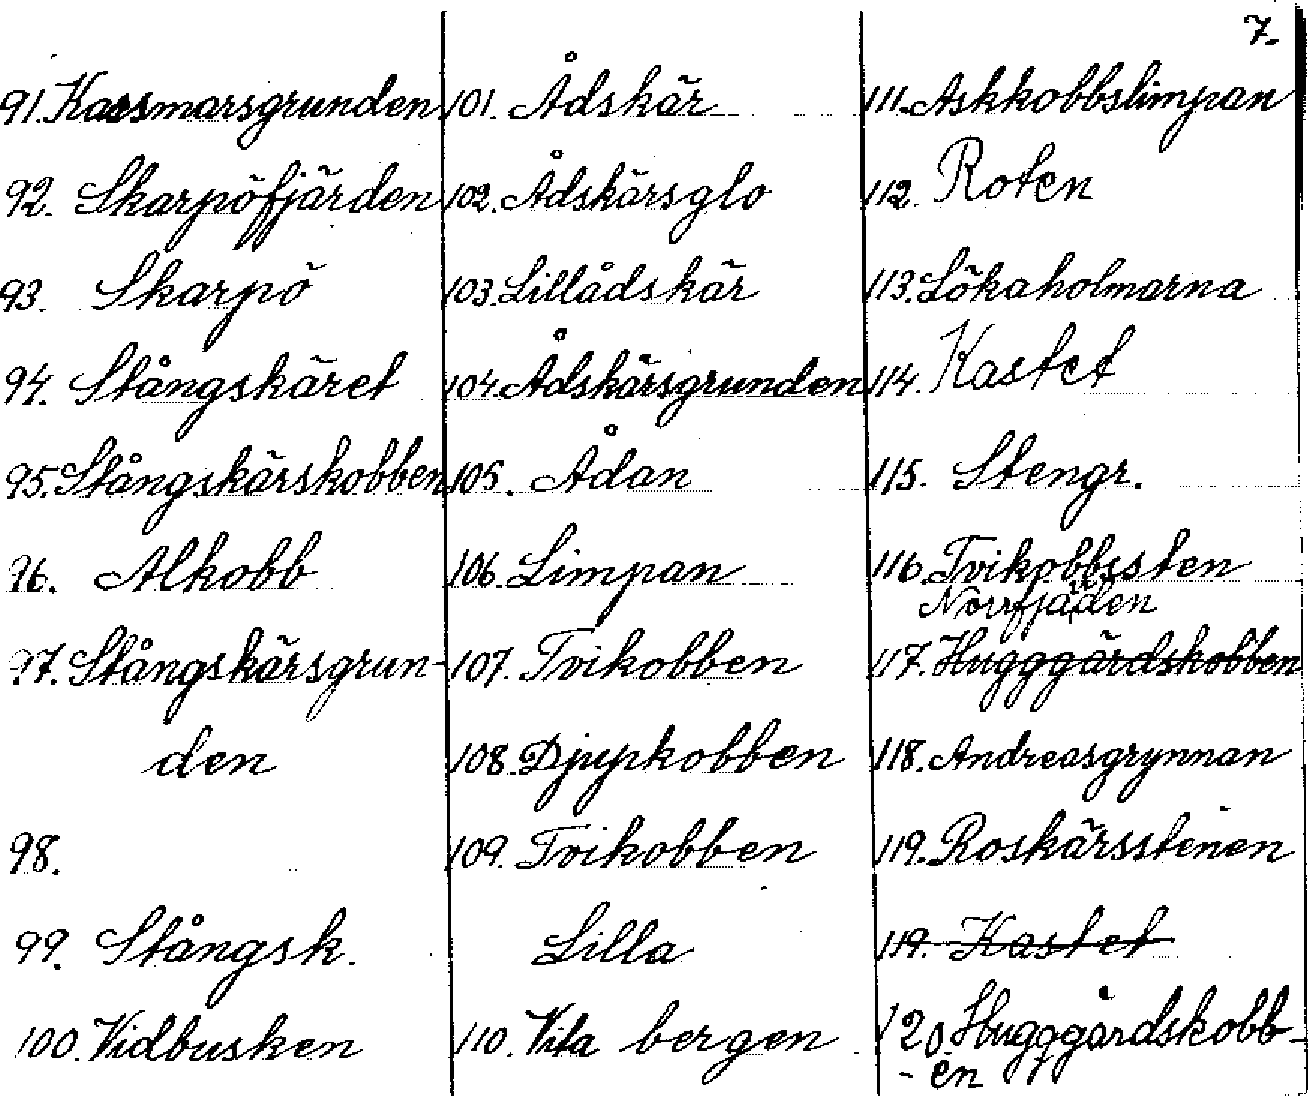 7.
91. Kassmarsgrunden
92. Skarpöfjärden
93. Skarpö
94. Stångskäret
95. Stångskärskobben
96. Alkobb
97. Stångskärsgrun-
den
98.
99. Stångsk.
100. Vidbusken
101. Ådskär
102. Ådskärsglo
103. Lillådskär
104. Ådskärsgrunden
105. Ådan
106. Limpan
107. Tvikobben
108. Djupkobben
109. Tvikobben
Lilla
110. Vita bergen
111. Askkobbslimpan
112. Roten
113. Lökaholmarna
114. Kastet
115. Stengr.
116. Tvikobbssten
Norrfjärden
117. Hugggårdskobben
118. Andreasgrynnan
119. Roskärsstenen
119. Kastet
120. Hugggårdskobb-
-en